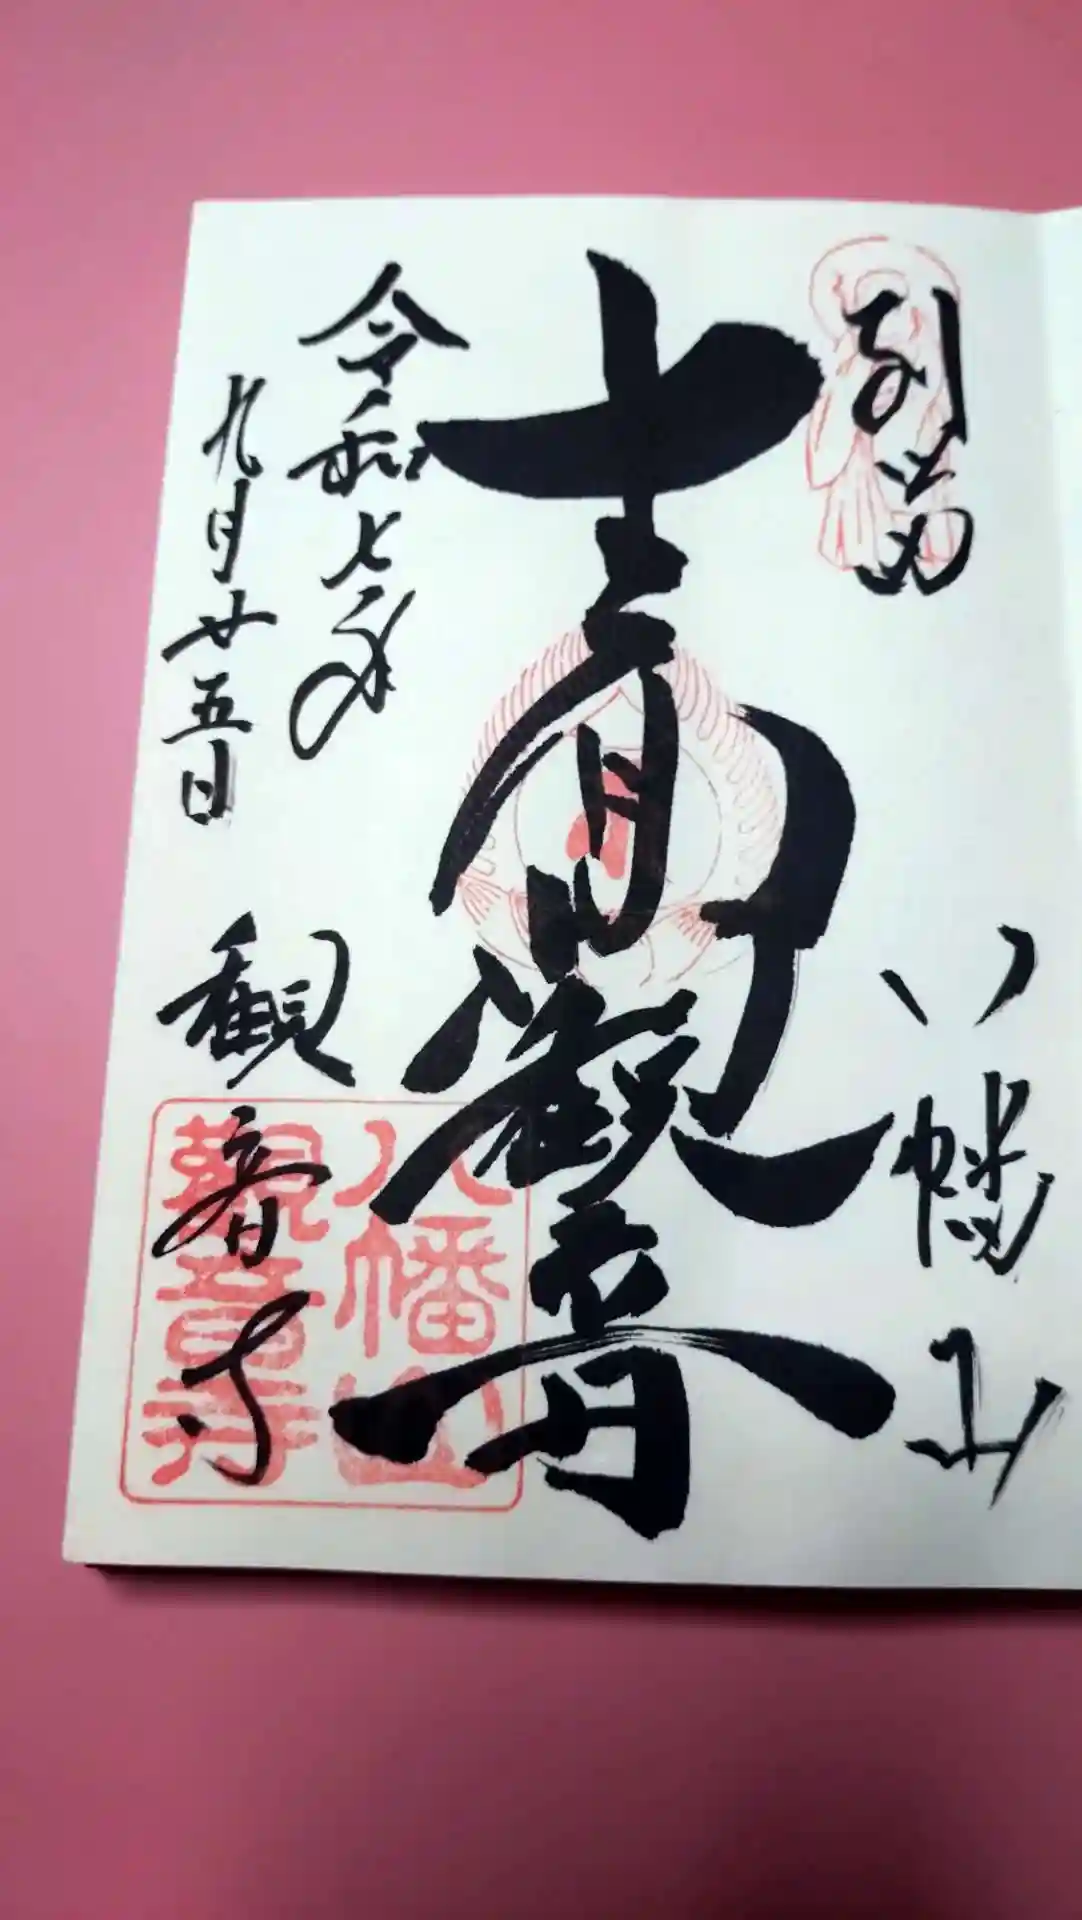 別当 八幡山
十一面観音
令和七年
九月廿五日
観音寺
八幡山
観音寺